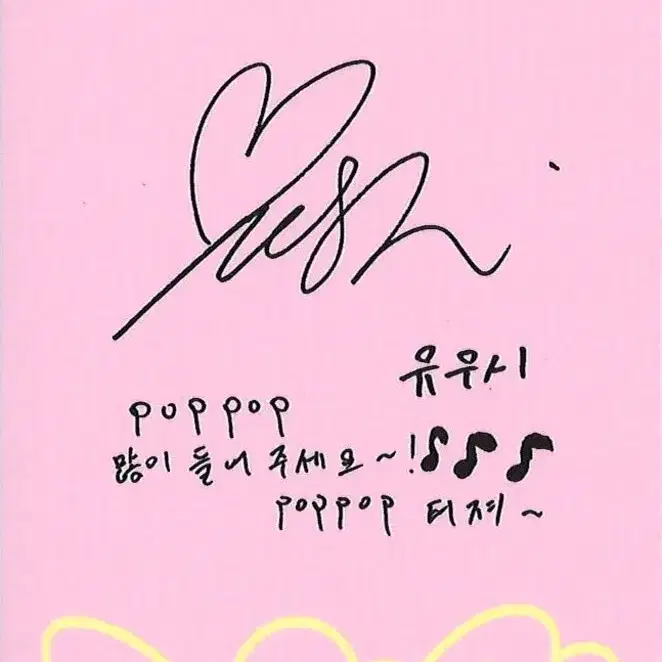 유우시
poppop
많이 들어 주세요~!♪♪♪
poppop 터져~